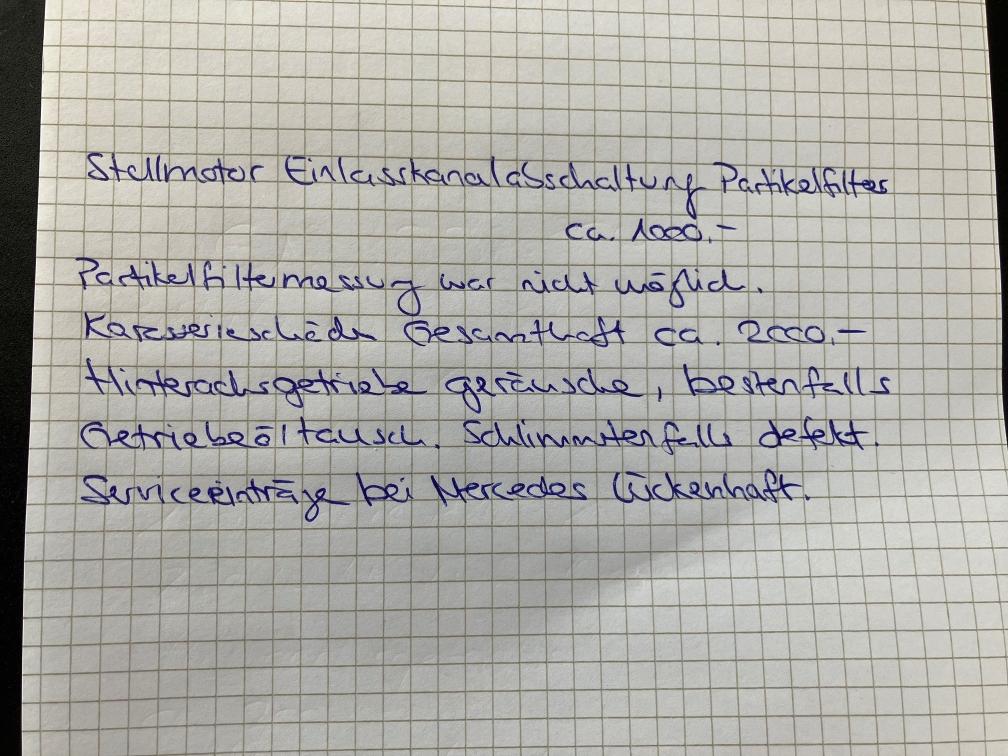 Stellmotor Einlasskanalabschaltung Partikelfilter
ca. 1000.-
Partikelfiltermessung war nicht möglich.
Karosserieschäden Gesamthaft ca. 2000.-
Hinterachsgetriebe geräusche, bestenfalls
Getriebeöltausch. Schlimmstenfalls defekt.
Serviceeinträge bei Mercedes lückenhaft.